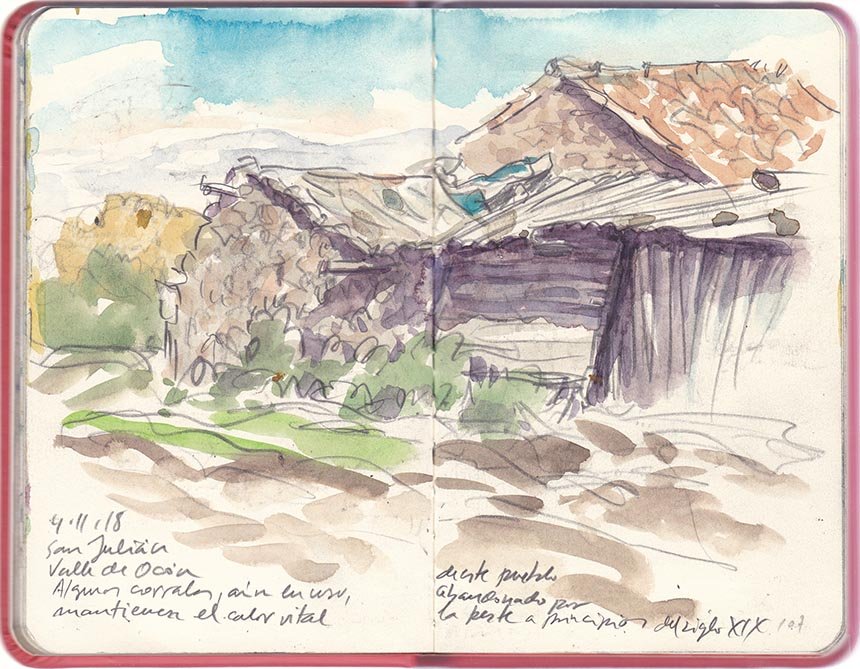 4.11.18
San Julián
Valle de Ocón
Algunos corrales, aún en uso,
mantienen el calor vital
de este pueblo
abandonado por
la peste a principios del siglo XIX